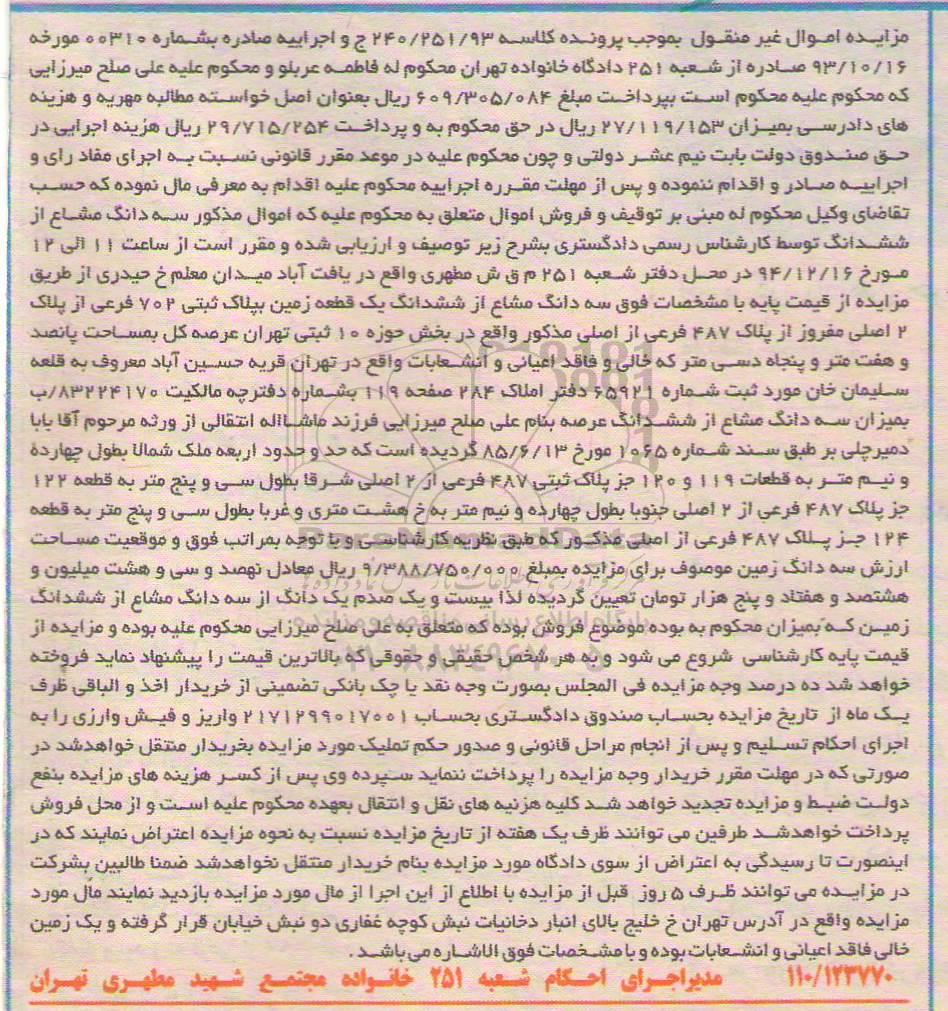 مزایده اموال غیر منقول بموجب پرونده کلاسه ۲۴۰/۲۵۱/۹۳ ج و اجراییه صادره بشماره ۰۰۳۱۰ مورخه
۹۳/۱۰/۱۶ صادره از شعبه ۲۵۱ دادگاه خانواده تهران محکوم له فاطمه عربلو و محکوم علیه علی صلح میرزایی
که محکوم علیه محکوم است بپرداخت مبلغ ۶۰۹/۳۰۵/۰۸۴ ریال بعنوان اصل خواسته مطالبه مهریه و هزینه
های دادرسی بمیزان ۲۷/۱۱۹/۱۵۳ ریال در حق محکوم به و پرداخت ۲۹/۷۱۵/۲۵۴ ریال هزینه اجرایی در
حق صندوق دولت بابت نیم عشر دولتی و چون محکوم علیه در موعد مقرر قانونی نسبت به اجرای مفاد رای و
اجراییه صادر و اقدام ننموده و پس از مهلت مقرره اجراییه محکوم علیه اقدام به معرفی مال نموده که حسب
تقاضای وکیل محکوم له مبنی بر توقیف و فروش اموال متعلق به محکوم علیه که اموال مذکور سه دانگ مشاع از
ششدانگ توسط کارشناس رسمی دادگستری بشرح زیر توصیف و ارزیابی شده و مقرر است از ساعت ۱۱ الی ۱۲
مورخ ۹۴/۱۲/۱۶ در محل دفتر شعبه ۲۵۱ م ق ش مطهری واقع در یافت آباد میدان معلم خ حیدری از طریق
مزایده از قیمت پایه با مشخصات فوق سه دانگ مشاع از ششدانگ یک قطعه زمین بپلاک ثبتی ۷۰۲ فرعی از پلاک
۲ اصلی مفروز از پلاک ۴۸۷ فرعی از اصلی مذکور واقع در بخش حوزه ۱۰ ثبتی تهران عرصه کل بمساحت پانصد
و هفت متر و پنجاه دسی متر که خالی و فاقد اعیانی و انشعابات واقع در تهران قریه حسین آباد معروف به قلعه
سلیمان خان مورد ثبت شماره ۶۵۹۲۱ دفتر املاک ۲۸۴ صفحه ۱۱۹ بشماره دفترچه مالکیت ۸۳۲۲۴۱۷۰/ب
بمیزان سه دانگ مشاع از ششدانگ عرصه بنام علی صلح میرزایی فرزند ماشااله انتقالی از ورثه مرحوم آقا بابا
دمیرچلی بر طبق سند شماره ۱۰۶۵ مورخ ۸۵/۶/۱۳ گردیده است که حد و حدود اربعه ملک شمالا بطول چهارده
و نیم متر به قطعات ۱۱۹ و ۱۲۰ جز پلاک ثبتی ۴۸۷ فرعی از ۲ اصلی شرقا بطول سی و پنج متر به قطعه ۱۲۲
جز پلاک ۴۸۷ فرعی از ۲ اصلی جنوبا بطول چهارده و نیم متر به خ هشت متری و غربا بطول سی و پنج متر به قطعه
۱۲۴ جز پلاک ۴۸۷ فرعی از اصلی مذکور که طبق نظریه کارشناسی و با توجه بمراتب فوق و موقعیت مساحت
ارزش سه دانگ زمین موصوف برای مزایده بمبلغ ۹/۳۸۸/۷۵۰/۰۰۰ ریال معادل نهصد و سی و هشت میلیون و
هشتصد و هفتاد و پنج هزار تومان تعیین گردیده لذا بیست و یک صدم یک دانگ از سه دانگ مشاع از ششدانگ
زمین که بمیزان محکوم به بوده موضوع فروش بوده که متعلق به علی صلح میرزایی محکوم علیه بوده و مزایده از
قیمت پایه کارشناسی شروع می شود و به هر شخص حقیقی و حقوقی که بالاترین قیمت را پیشنهاد نماید فروخته
خواهد شد ده درصد وجه مزایده فی المجلس بصورت وجه نقد یا چک بانکی تضمینی از خریدار اخذ و الباقی ظرف
یک ماه از تاریخ مزایده بحساب صندوق دادگستری بحساب ۲۱۷۱۲۹۹۰۱۷۰۰۱ واریز و فیش واریزی را به
اجرای احکام تسلیم و پس از انجام مراحل قانونی و صدور حکم تملیک مورد مزایده بخریدار منتقل خواهدشد در
صورتی که در مهلت مقرر خریدار وجه مزایده را پرداخت ننماید سپرده وی پس از کسر هزینه های مزایده بنفع
دولت ضبط و مزایده تجدید خواهد شد کلیه هزنیه های نقل و انتقال بعهده محکوم علیه است و از محل فروش
پرداخت خواهدشد طرفین می توانند ظرف یک هفته از تاریخ مزایده نسبت به نحوه مزایده اعتراض نمایند که در
اینصورت تا رسیدگی به اعتراض از سوی دادگاه مورد مزایده بنام خریدار منتقل نخواهدشد ضمنا طالبین بشرکت
در مزایده می توانند ظرف ۵ روز قبل از مزایده با اطلاع از این اجرا از مال مورد مزایده بازدید نمایند مال مورد
مزایده واقع در آدرس تهران خ خلیج بالای انبار دخانیات نبش کوچه غفاری دو نبش خیابان قرار گرفته و یک زمین
خالی فاقد اعیانی و انشعابات بوده و با مشخصات فوق الاشاره می باشد .
۱۱۰/۱۲۳۷۷۰ مدیراجرای احکام شعبه ۲۵۱ خانواده مجتمع شهید مطهری تهران